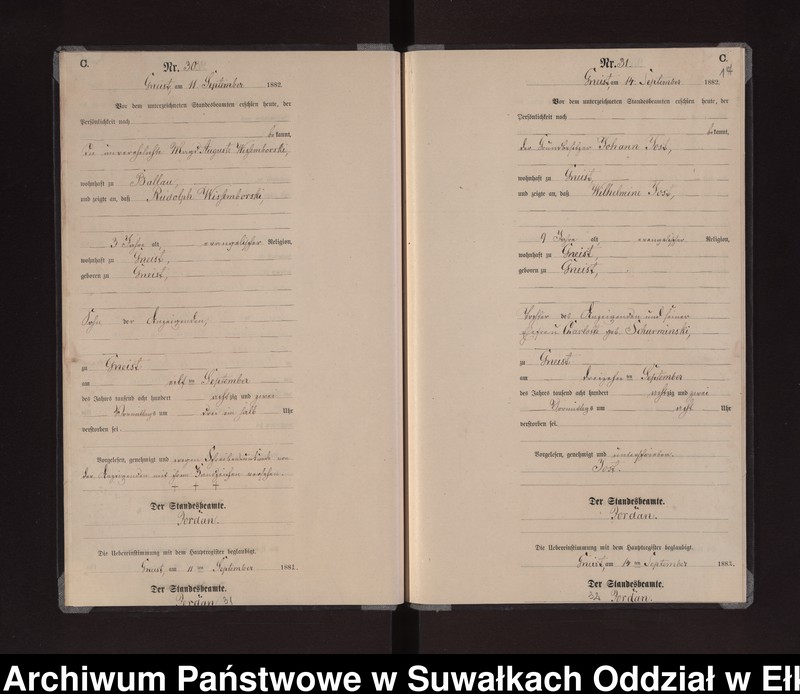 C.
Nr. 30
Gneist, am 11 September 1882.
Vor dem unterzeichneten Standesbeamten erschien heute, der
Persönlichkeit nach
bekannt,
die unverehelichte Magd Auguste
wohnhaft zu Ballau,
und zeigte an, daß Rudolph
3 Jahre alt evangelischer Religion,
wohnhaft zu Gneist,
geboren zu Gneist,
Sohn der Anzeigenden,
zu Gneist
am elf ten September
des Jahres tausend acht hundert achtzig und zwei
Vormittags um drei ein halb Uhr
verstorben sei.
Vorgelesen, genehmigt und wegen Schreibensunkunde von
der Anzeigenden mit ihrem Handzeichen versehen.
+ + +
Der Standesbeamte.
Jordan.
Die Uebereinstimmung mit dem Hauptregister beglaubigt.
Gneist, am 11 ten September 1882.
Der Standesbeamte.
Jordan 31
C.
Nr. 31.
Gneist, am 14 September 1882.
Vor dem unterzeichneten Standesbeamten erschien heute, der
Persönlichkeit nach
bekannt,
der Grundbesitzer Johann Jost,
wohnhaft zu Gneist,
und zeigte an, daß Wilhelmine Jost,
9 Jahre alt evangelischer Religion,
wohnhaft zu Gneist,
geboren zu Gneist,
Tochter des Anzeigenden und seiner
Ehefrau Charlotte geb.
zu Gneist
am dreizehn ten September
des Jahres tausend acht hundert achtzig und zwei
Vormittags um acht Uhr
verstorben sei.
Vorgelesen, genehmigt und unterschrieben.
Jost.
Der Standesbeamte.
Jordan.
Die Uebereinstimmung mit dem Hauptregister beglaubigt.
Gneist, am 14 ten September 1882.
Der Standesbeamte.
32 Jordan.
Archiwum Państwowe w Suwałkach Oddział w Eł